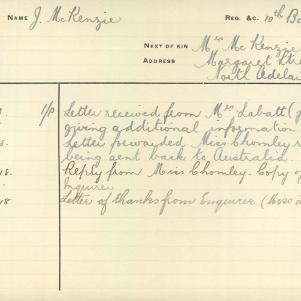 NAME J. McKenzie REG. &C. 10th Ba
NEXT OF KIN Mrs McKenzie
ADDRESS Margaret Stre
North Adelai
1/P Letter received from Mrs Labatt (
giving additional information
Letter forwarded Miss Chomley r
being sent back to Australia.
18. Reply from Miss Chomley. Copy of
Inquirer
18 Letter of thanks from Enquirer (Miss